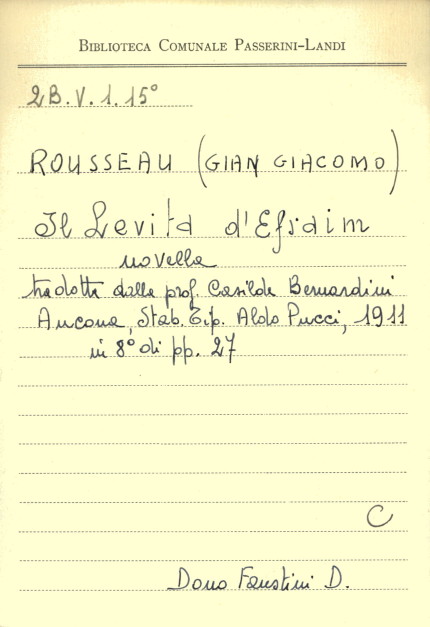 BIBLIOTECA COMUNALE PASSERINI-LANDI
2B.V.1.15°
ROUSSEAU (GIAN GIACOMO)
Il Levita d'Efraim
novella
tradotta dalla prof. Casilde Bernardini
Ancona, Stab. Tip. Aldo Pucci, 1911
in 8° di pp. 27
C
Dono Faustini D.